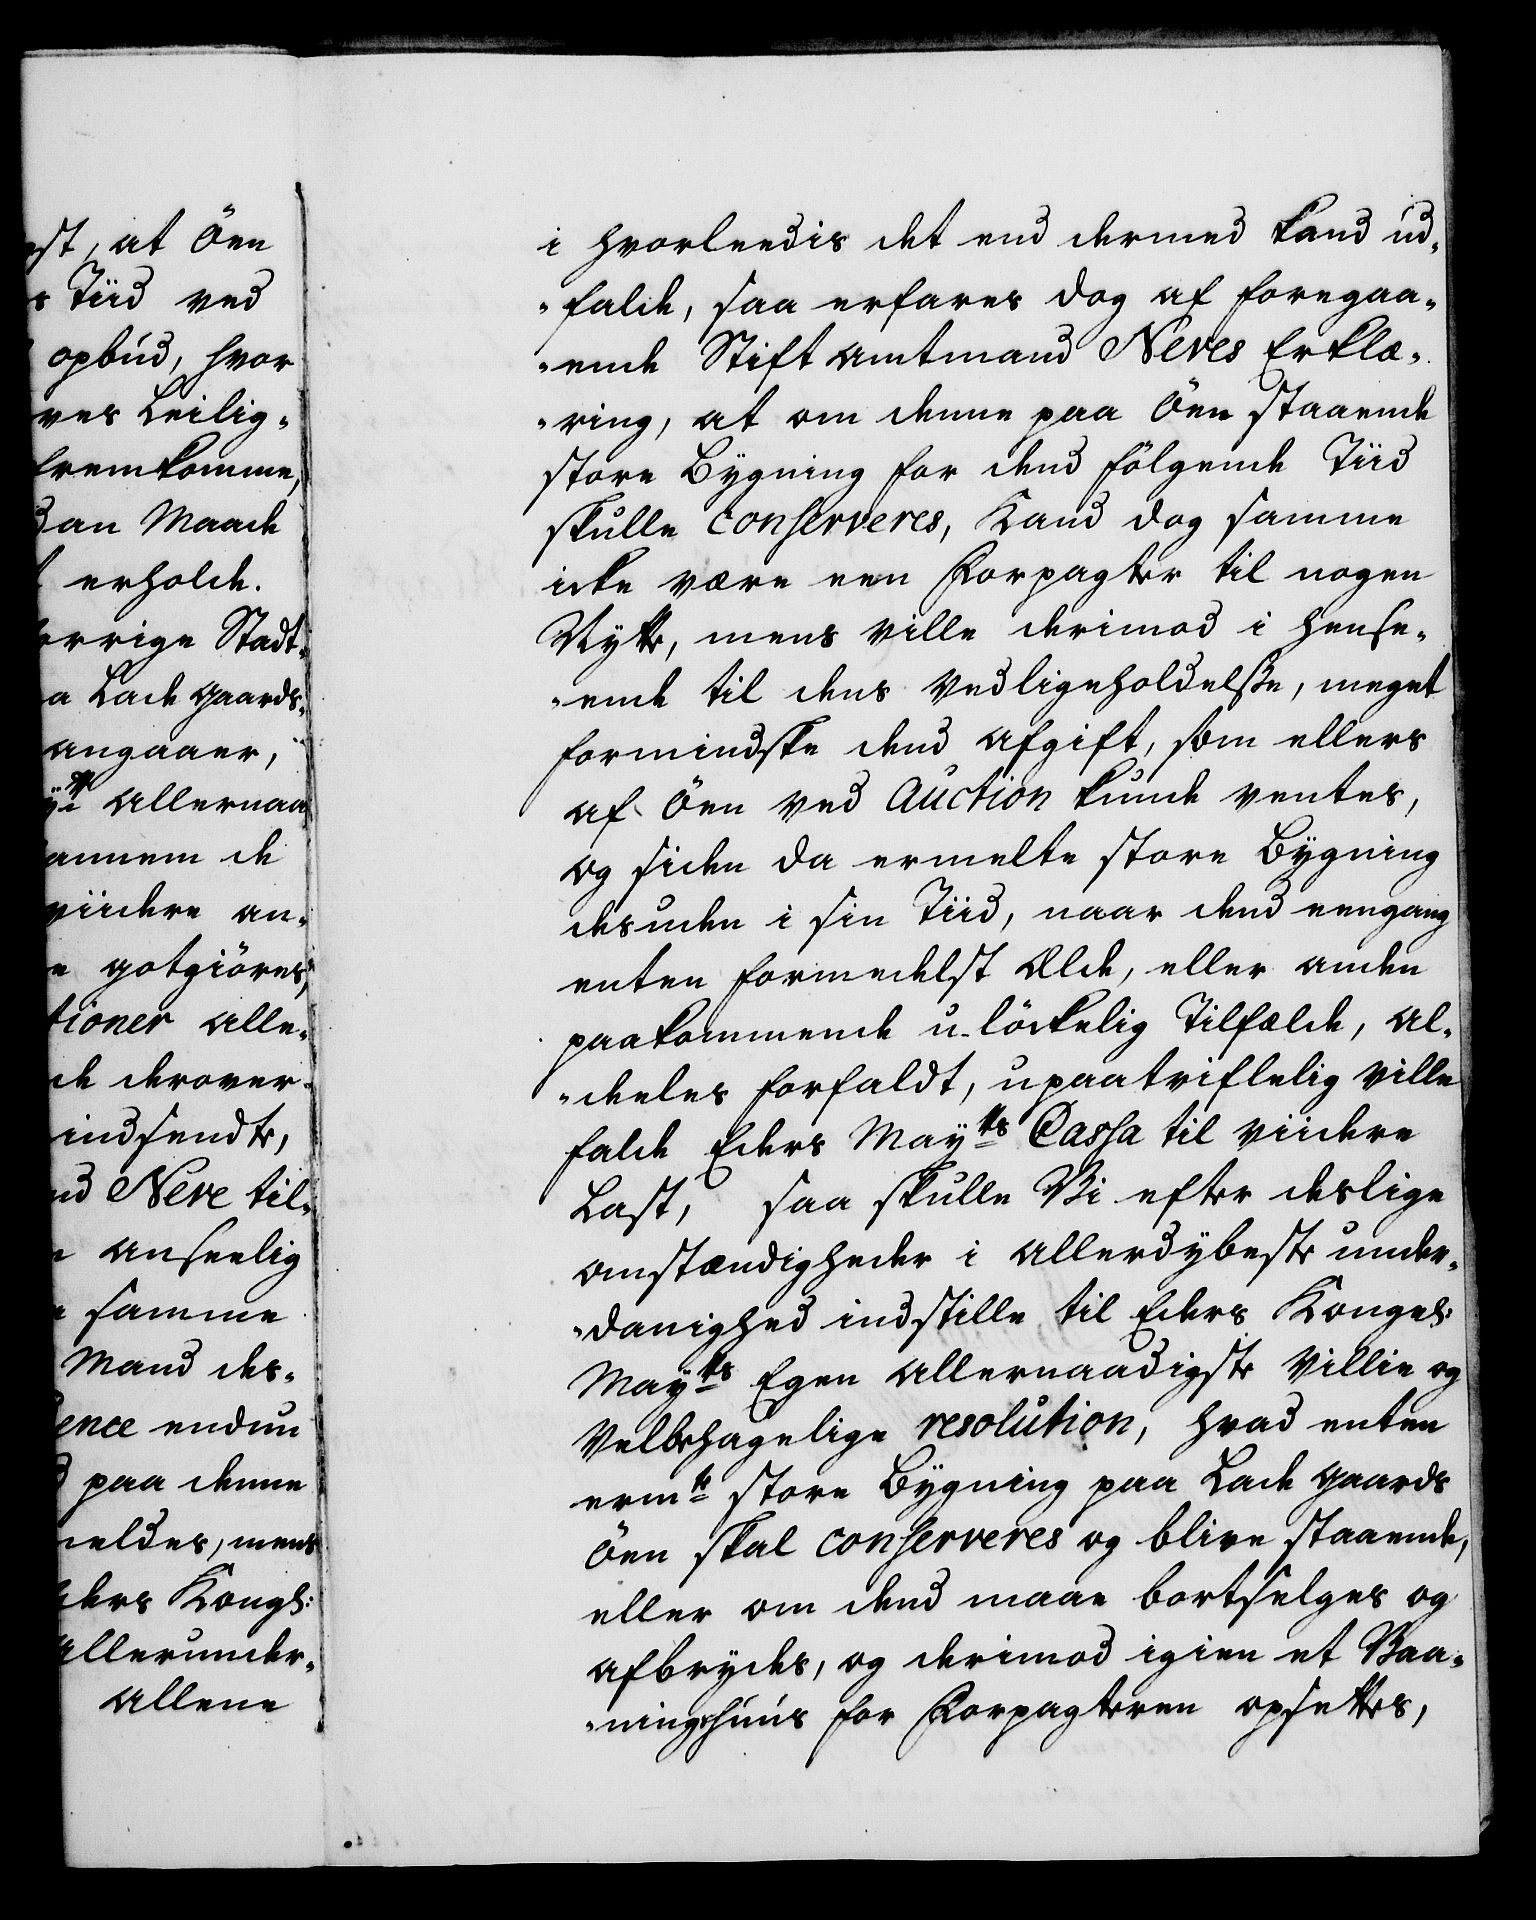 est, at Öen
s Tiid ved
opbud, hvor
ves Leilig-
fremkomme,
dan Maade
erholde.
errige Stadt-
a Lade gaards-
angaaer,
yts allernaa
annem de
viidere an-
e gotgiöres,
tioner alle-
de derover-
indsendte,
nd Neve til-
anseelig
e samme
Mand des-
ence endnu
d paa denne
meldes, mens
ders Kongl:
allerunder-
allene
i hvorleedis det end dermed kand ud-
-falde, saa erfares dog af foregaa-
-ende Stift amtmand Neves Erklæ-
-ring, at om denne paa Öen staaende
store Bÿgning for dend fölgende Tiid
skulle conserveres, kand dog samme
icke være een Forpagter til nogen
Nÿtte, mens ville derimod i hense-
-ende til dens Vedligeholdelße, meget
formindske dend afgift, som ellers
af Öen ved Auction kunde ventes,
og siden da ermelte store Bÿgning
desuden i sin Tiid, naar dend eengang
enten formedelst Ælde, eller anden
paakommende u-löckelig Tilfælde, al-
-deeles forfaldt, upaatviflelig ville
falde Eders Maÿts Cassa til viidere
Last, saa skulle Vi efter deslige
omstændigheder i allerdÿbeste under-
-danighed indstille til Eders Kongel:
Maÿts Egen allernaadigste Villie og
Velbehagelige resolution, hvad enten
ermte store Bÿgning paa Lade gaards
Öen skal conserveres og blive staaende,
eller om dend maae bortselges og
afbrydes, og derimod igien et Vaa-
-ningshuus for Forpagteren opsettes,